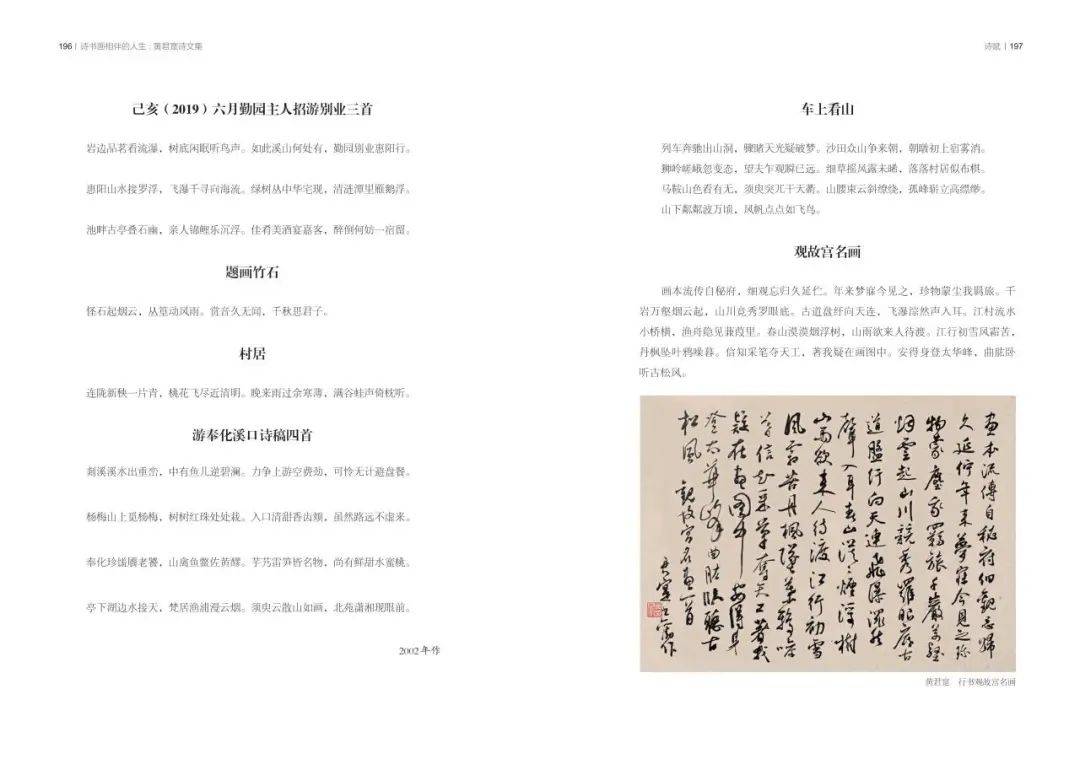 196 | 诗书画相伴的人生：黄君寔诗文集
己亥（2019）六月勤园主人招游别业三首
岩边品茗看流瀑，树底闲眠听鸟声。如此溪山何处有，勤园别业惠阳行。
惠阳山水接罗浮，飞瀑千寻向海流。绿树丛中华宅现，清涟潭里雁鹅浮。
池畔古亭叠石幽，亲人锦鲤乐沉浮。佳肴美酒宴嘉客，醉倒何妨一宿留。
题画竹石
怪石起烟云，丛篁动风雨。赏音久无闻，千秋思君子。
村居
连陇新秧一片青，桃花飞尽近清明。晚来雨过余寒薄，满谷蛙声倚枕听。
游奉化溪口诗稿四首
剡溪溪水出重峦，中有鱼儿逆碧澜。力争上游空费劲，可怜无计避盘餐。
杨梅山上觅杨梅，树树红珠处处栽。入口清甜香齿颊，虽然路远不虚来。
奉化珍馐餍老饕，山禽鱼鳖佐黄醪。芋艿雷笋皆名物，尚有鲜甜水蜜桃。
亭下湖边水接天，梵居渔浦漫云烟。须臾云散山如画，北苑潇湘现眼前。
2002年作
诗赋 | 197
车上看山
列车奔驰出山洞，骤睹天光疑破梦。沙田众山争来朝，朝暾初上宿雾消。
狮岭嵯峨忽变态，望夫乍观瞬已远。细草摇风露未晞，落落村居似布棋。
马鞍山色看有无，须臾突兀干天衢。山腰束云斜缭绕，孤峰崭立高缥缈。
山下粼粼波万顷，风帆点点如飞鸟。
观故宫名画
画本流传自秘府，细观忘归久延伫。年来梦寐今见之，珍物蒙尘我羁旅。千
岩万壑烟云起，山川竞秀罗眼底。古道盘纡向天连，飞瀑淙然声入耳。江村流水
小桥横，渔舟隐见蒹葭里。春山漠漠烟浮树，山雨欲来人待渡。江行初雪风霜苦，
丹枫坠叶鸦噪暮。信知采笔夺天工，著我疑在画图中。安得身登太华峰，曲肱卧
听古松风。
画本流傳自秘府細觀忘歸
久延佇年來夢寐今見之珍
物蒙塵我羈旅千巖萬壑
烟雲起山川競秀羅眼底古
道盤紆向天連飛瀑淙然
聲入耳春山漠漠煙浮樹
山雨欲來人待渡江行初雪
風霜苦丹楓墜葉鴉噪
暮信知采筆奪天工著我
疑在畫圖中安得身
登太華峰曲肱臥聽古
松風 觀故宮名畫一首
黄君寔 行书观故宫名画